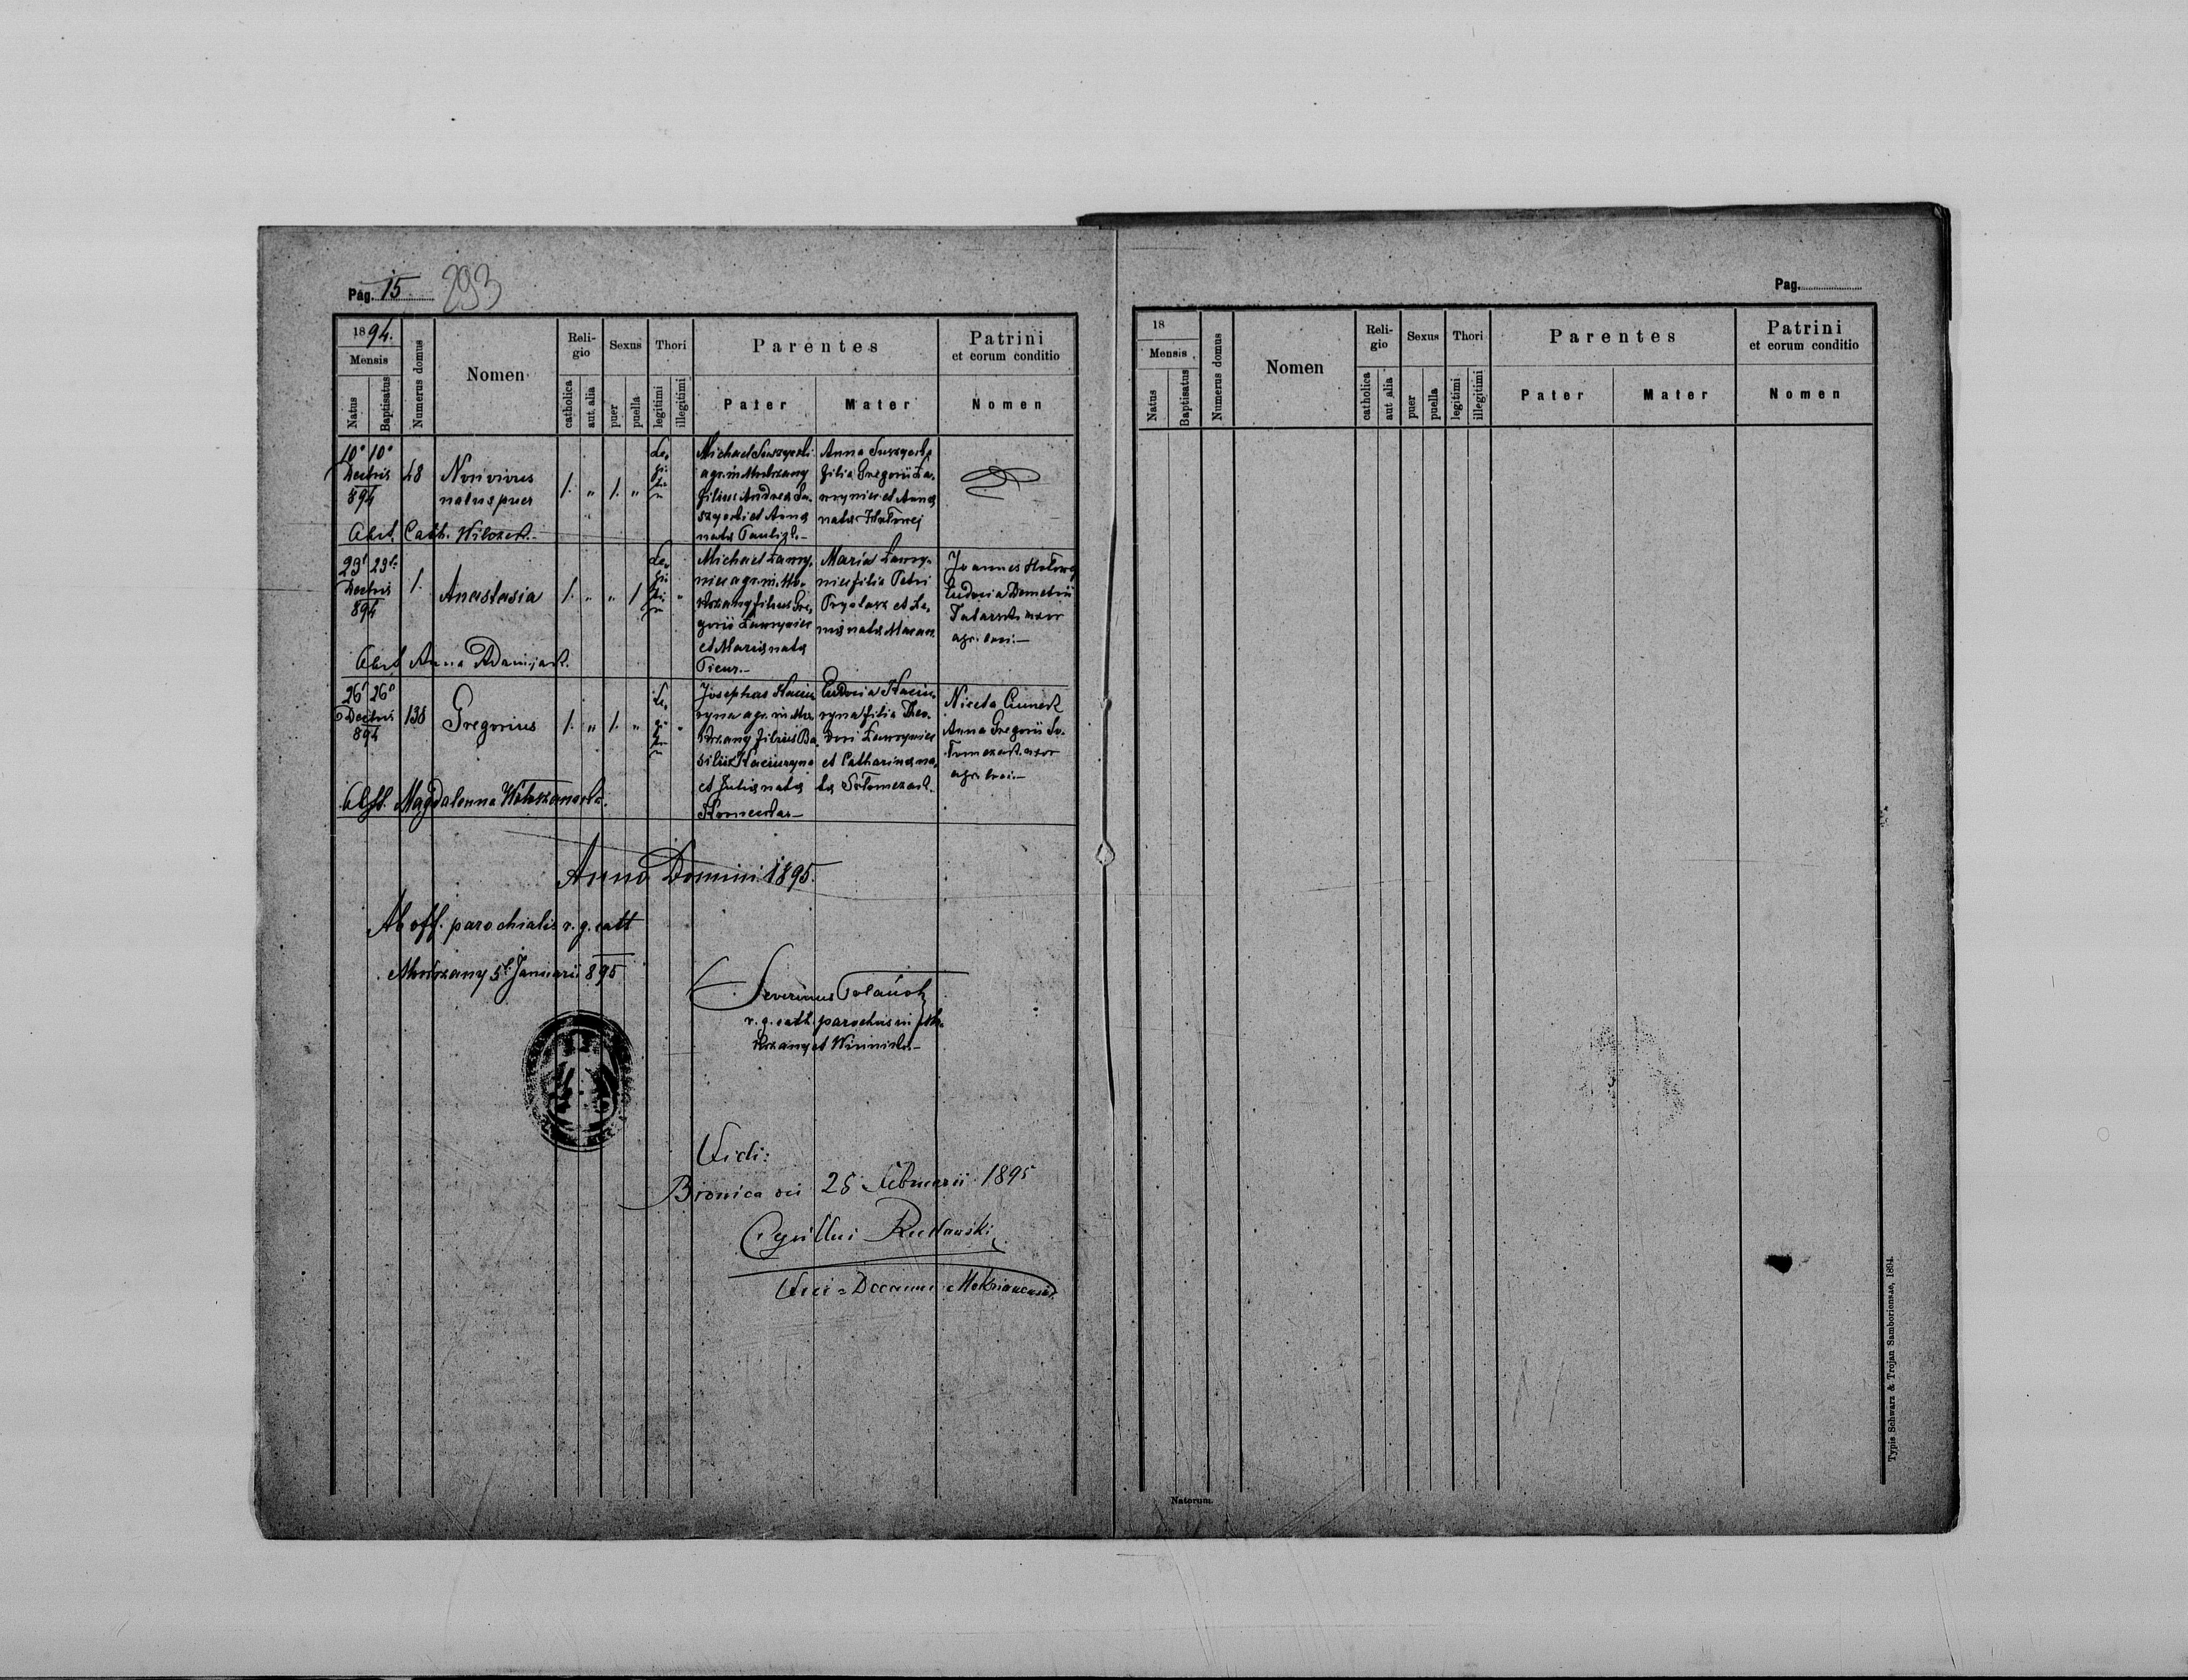 Pag. 15 293
1894.
Mensis
Natus
Baptisatus
Numerus domus
Nomen
Reli-
gio
catholica
aut alia
Sexus
puer
puella
Thori
legitimi
illegitimi
Parentes
Pater
Mater
Patrini
et eorum conditio
Nomen
10° 10°
Decbris
894
48
Non vivus
natus puer
1. „ 1. „
Le-
gi-
ti-
mi
Michael Suszycki
agr. in Mokrzany
filius Andrea Su-
szycki et Anna
nata
Anna Suszycka
filia Gregorii Ław-
ryniec et Anna
nata Hołowej
Obst. Cath. Wilczek.
23' 23'
Decbris
894
1.
Anastasia
1. „ „ 1
Le-
gi-
ti-
mi
„
Michael Ławry-
niec agr. in Mo-
krzany filius Gre-
gorii Ławryniec
et Maria nata
Maria Ławry-
niec filia Petri
et
nia nata
Joannes Hołowej
Eudocia Demetrii
uxor
agr. loci.—
Obst Anna Adamijack.
26' 26°
Decbris
894
138
Gregorius
1. „ 1. „
Le-
gi-
ti-
mi
„
Josephus
agr. in Mo-
krzany filius Ba-
silii
et Julia nata
Eudocia
filia Theo-
dori Ławryniec
et Catharina na-
ta Sołomczak.
Niceta
Anna Gregorii So-
łomczak uxor
agr. loci.—
Obst. Magdalenna
Anno Domini 1895.
Ab off. parochiali r. g. catt
Mokrzany 5t Januarii 895
Severinus Polański
r. g. cath. parochus in Mo-
krzany et Winniki.—
Vidi:
Bronica die 25 Februarii 1895
Cyrillus Rudawski
Vice-Decanus Mokrianensis.
Pag.
18
Mensis
Natus
Baptisatus
Numerus domus
Nomen
Reli-
gio
catholica
aut alia
Sexus
puer
puella
Thori
legitimi
illegitimi
Parentes
Pater
Mater
Patrini
et eorum conditio
Nomen
Natorum.
Typis Schwarz & Trojan Samboriensae, 1894.